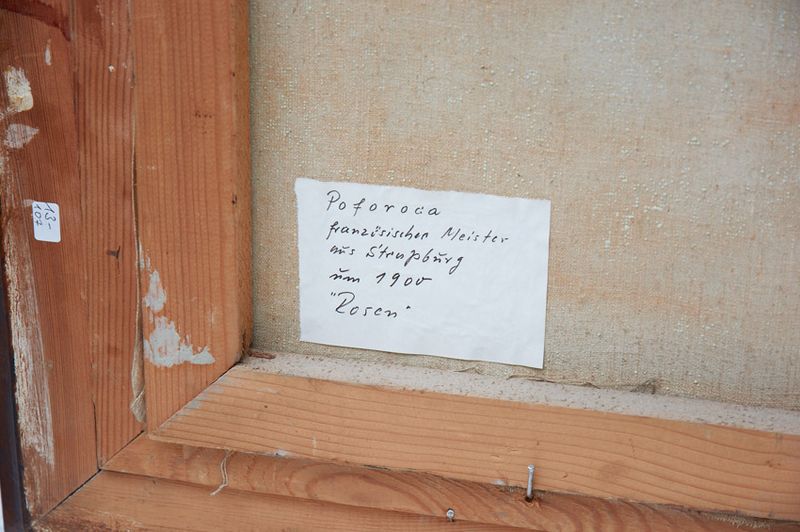 Poforoca
französischer Meister
aus Straßburg
um 1900
"Rosen"
13-
107